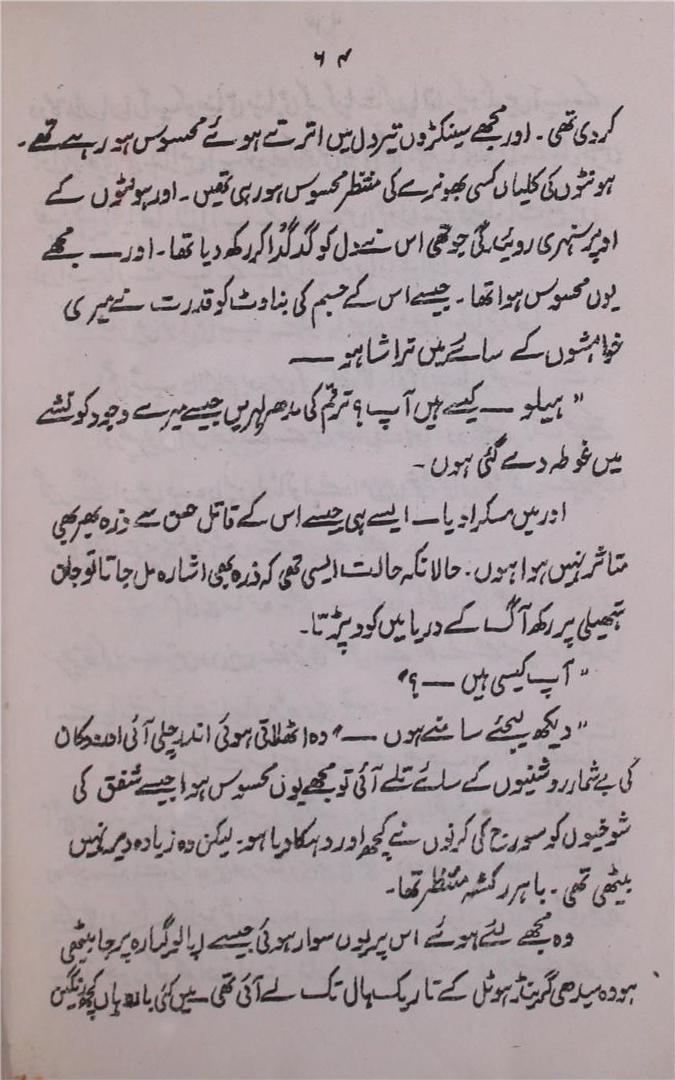 ۶۴
کر دی تھی۔ اور مجھے سینکڑوں تیر دل میں اترتے ہوئے محسوس ہو رہے تھے۔
ہونٹوں کی کلیاں کسی بھونرے کی منتظر محسوس ہو رہی تھیں۔ اور ہونٹوں کے
اوپر سنہری روئیں کی جو تھی اس نے دل کو گدگدا کر رکھ دیا تھا۔ اور — مجھے
یوں محسوس ہوا تھا۔ جیسے اس کے جسم کی بناوٹ کو قدرت نے میری
خواہشوں کے سائے میں تراشا ہو —
" ہیلو — کیسے ہیں آپ؟ ترنم کی مدھر لہریں جیسے میرے وجود کو نشے
میں غوطہ دے گئی ہوں۔
اور میں مسکرا دیا — ایسے ہی جیسے اس کے قاتل حسن سے ذرہ بھر بھی
متاثر نہیں ہوا ہوں۔ حالانکہ حالت ایسی تھی کہ ذرہ بھی اشارہ مل جاتا تو جان
ہتھیلی پر رکھ آگ کے دریا میں کود پڑتا۔
" آپ کیسی ہیں —؟"
" دیکھ لیجئے سامنے ہوں —" وہ اٹھلاتی ہوئی اندر چلی آئی اور دکان
کی بے شمار روشنیوں کے سائے تلے آئی تو مجھے یوں محسوس ہوا جیسے شفق کی
شوخیوں کو سورج کی کرنوں نے کچھ اور دہکا دیا ہو۔ لیکن وہ زیادہ دیر نہیں
بیٹھی تھی۔ باہر رکشہ منتظر تھا۔
وہ مجھے لئے ہوئے اس پر یوں سوار ہوئی جیسے پر جا بیٹھی
ہو وہ سیدھی گرینڈ ہوٹل کے تاریک ہال تک لے آئی تھی میں کئی بار وہاں کچھ رنگین